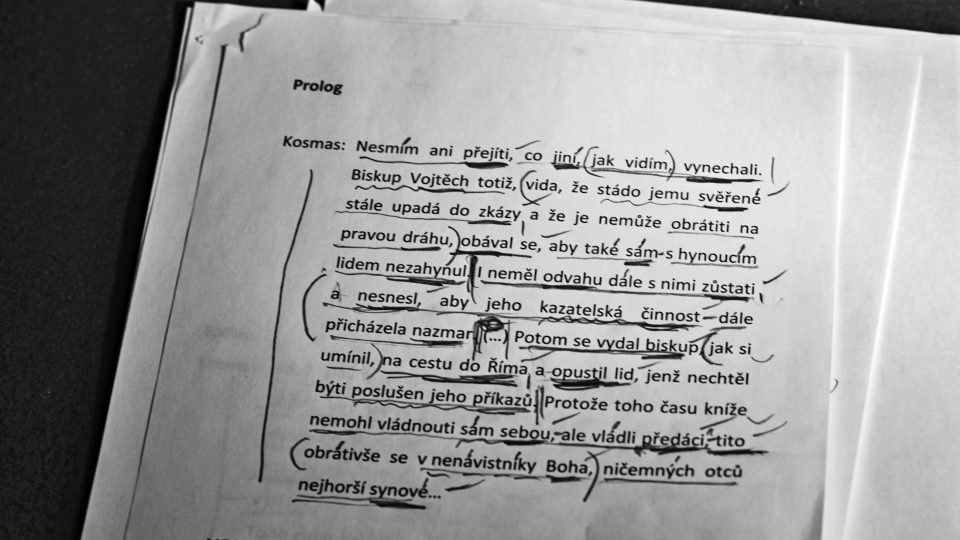 Prolog
Kosmas: Nesmím ani přejíti, co jiní, jak vidím, vynechali.
Biskup Vojtěch totiž, vida, že stádo jemu svěřené
stále upadá do zkázy a že je nemůže obrátiti na
pravou dráhu, obával se, aby také sám s hynoucím
lidem nezahynul. I neměl odvahu dále s nimi zůstati
a nesnesl, aby jeho kazatelská činnost dále
přicházela nazmar. (...) Potom se vydal biskup, jak si
umínil, na cestu do Říma a opustil lid, jenž nechtěl
býti poslušen jeho příkazů. Protože toho času kníže
nemohl vládnouti sám sebou, ale vládli předáci, tito
obrátivše se v nenávistníky Boha, ničemných otců
nejhorší synové...